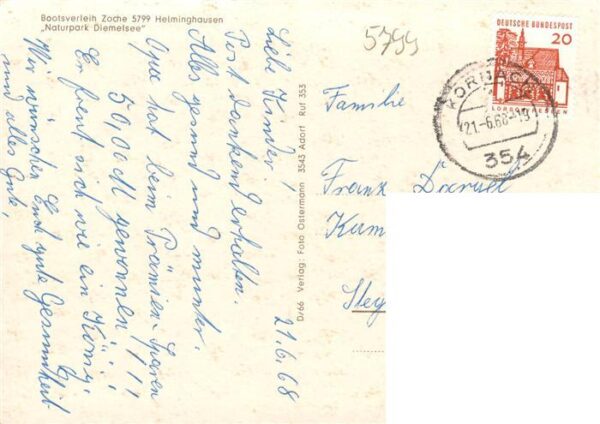 Bootsverleih Zache 5799 Helminghausen
„Naturpark Diemelsee"
5799
DEUTSCHE BUNDESPOST
20
LORSCH/HESSEN
KORBACH
21.-6.68-19
354
D/66 Verlag: Foto Ostermann 3543 Adorf Ruf 353
21.6.68
Liebe Kinder!
Post dankend erhalten.
Alles gesund und munter.
Opa hat beim Prämien-Sparen
50,00 M gewonnen!!!
Er freut sich wie ein König.
Wir wünschen Euch gute Gesundheit
und alles Gute,
Familie
Franz
Kam
Steg